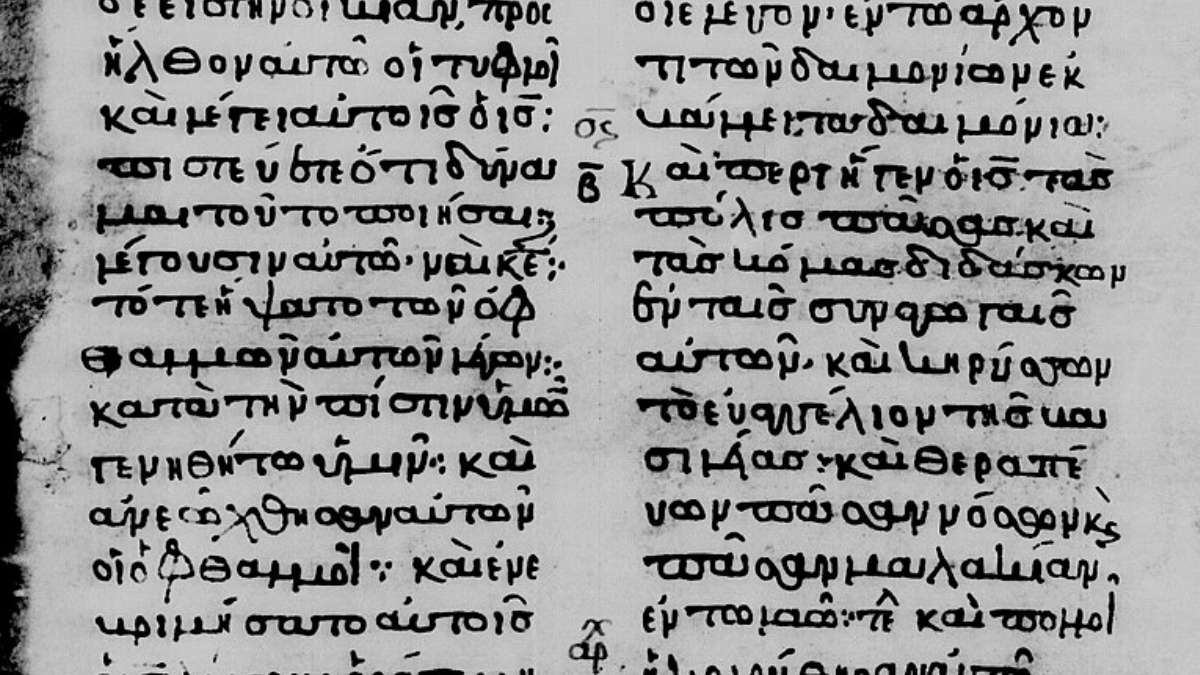 δὲ εἰς τὴν οἰκίαν, προσ
ῆλθον αὐτῶ οἱ τυφλοὶ
καὶ λέγει αὐτοῖς ὁ ις̅:
πιστεύετε ὅτι δύνα
μαι τοῦτο ποιῆσαι;
λέγουσιν αὐτῶ· ναὶ κε̅:
τότε ἥψατο τῶν ὀφ
θαλμῶν αὐτῶν λέγων:
κατὰ τὴν πίστιν ὑμῶν
γενηθήτω ὑμῖν: καὶ
ἀνεώχθησαν αὐτῶν
οἱ ὀφθαλμοί: καὶ ἐνε
βριμήσατο αὐτοῖς
οι ἔλεγον· ἐν τῶ ἄρχον
τι τῶν δαιμονίων ἐκ
βάλλει τὰ δαιμόνια:
β̅ Καὶ περιῆγεν ὁ ις̅ τὰς
πόλις πάσας καὶ
τὰς κόμας διδάσκων
ἐν ταῖς συναγωγαῖς
αὐτῶν, καὶ κηρύσσων
τὸ εὐαγγέλιον τῆς βα
σιλείας: καὶ θεραπε
ύων πᾶσαν νόσον κς
πᾶσαν μαλακίαν,
ἐν τῶ λαῶ: τε καὶ πολλοὶ